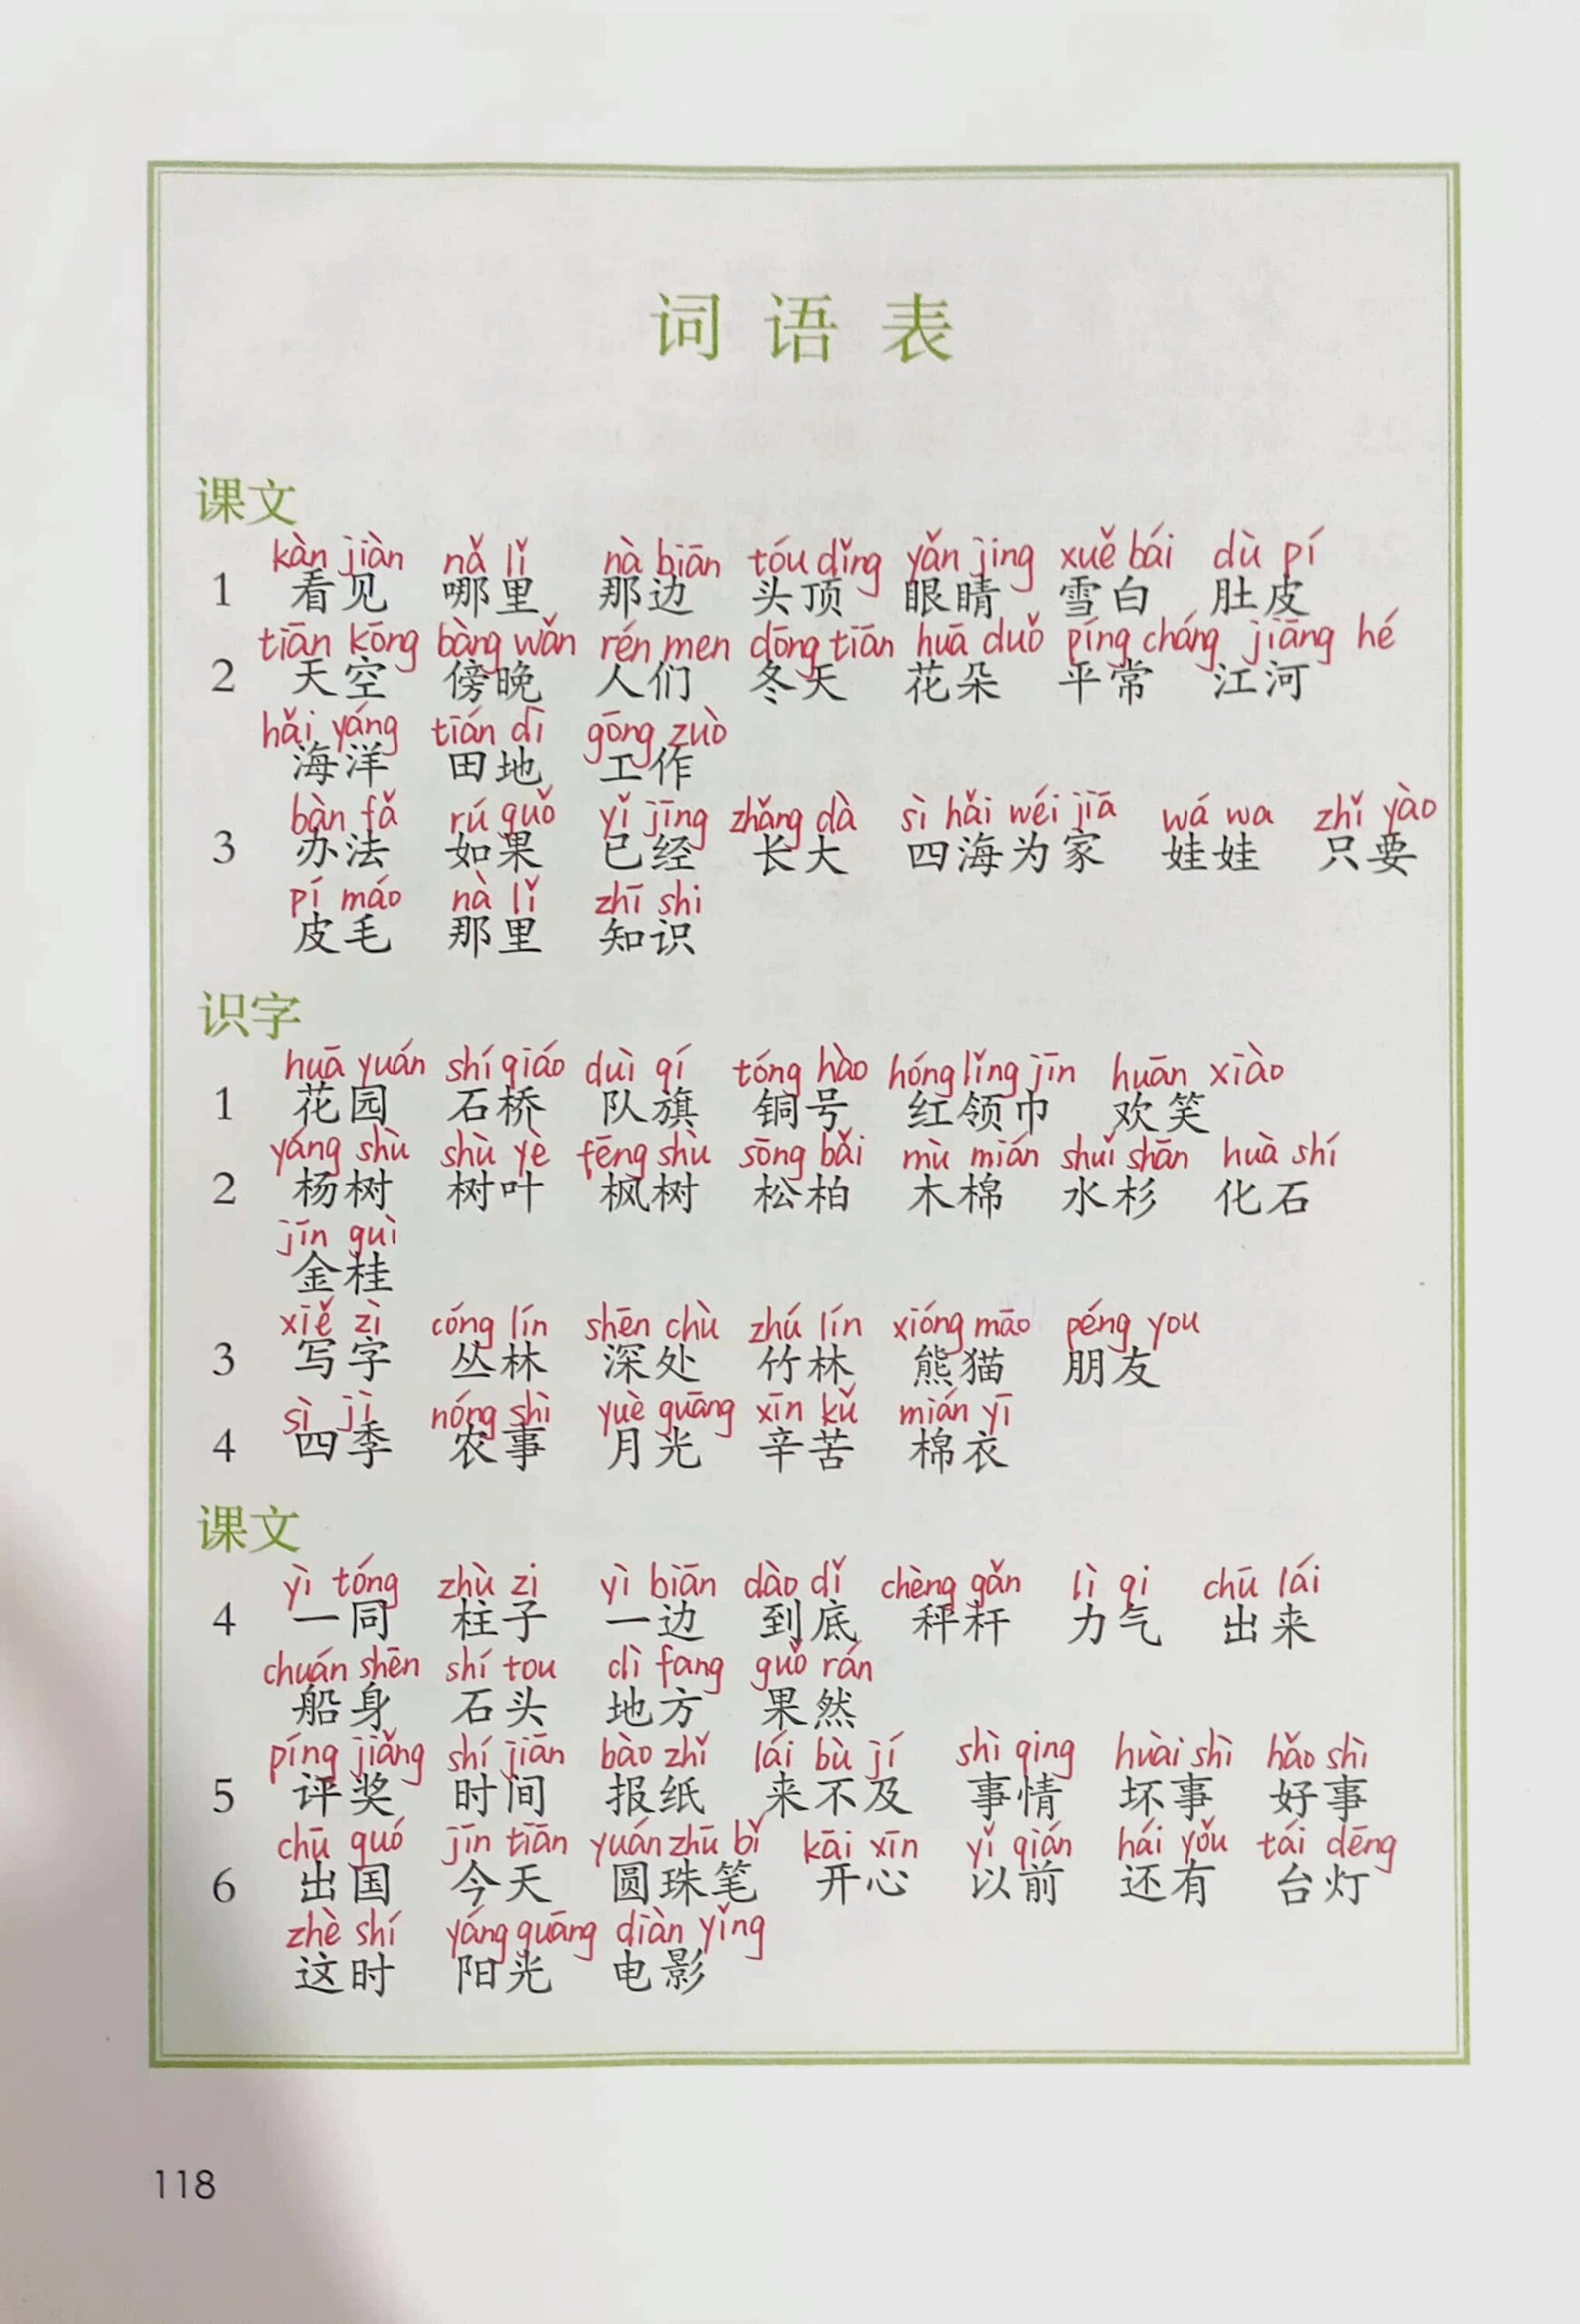 词语表
课文
kàn jiàn nǎ lǐ nà biān tóu dǐng yǎn jing xuě bái dù pí
1 看见 哪里 那边 头顶 眼睛 雪白 肚皮
tiān kōng bàng wǎn rén men dōng tiān huā duǒ píng cháng jiāng hé
2 天空 傍晚 人们 冬天 花朵 平常 江河
hǎi yáng tián dì gōng zuò
海洋 田地 工作
bàn fǎ rú guǒ yǐ jīng zhǎng dà sì hǎi wéi jiā wá wa zhǐ yào
3 办法 如果 已经 长大 四海为家 娃娃 只要
pí máo nà lǐ zhī shi
皮毛 那里 知识
识字
huā yuán shí qiáo duì qí tóng hào hóng lǐng jīn huān xiào
1 花园 石桥 队旗 铜号 红领巾 欢笑
yáng shù shù yè fēng shù sōng bǎi mù mián shuǐ shān huà shí
2 杨树 树叶 枫树 松柏 木棉 水杉 化石
jīn guì
金桂
xiě zì cóng lín shēn chù zhú lín xióng māo péng you
3 写字 丛林 深处 竹林 熊猫 朋友
sì jì nóng shì yuè guāng xīn kǔ mián yī
4 四季 农事 月光 辛苦 棉衣
课文
yì tóng zhù zi yì biān dào dǐ chèng gǎn lì qi chū lái
4 一同 柱子 一边 到底 秤杆 力气 出来
chuán shēn shí tou dì fang guǒ rán
船身 石头 地方 果然
píng jiǎng shí jiān bào zhǐ lái bù jí shì qing huài shì hǎo shì
5 评奖 时间 报纸 来不及 事情 坏事 好事
chū guó jīn tiān yuán zhū bǐ kāi xīn yǐ qián hái yǒu tái dēng
6 出国 今天 圆珠笔 开心 以前 还有 台灯
zhè shí yáng guāng diàn yǐng
这时 阳光 电影
118